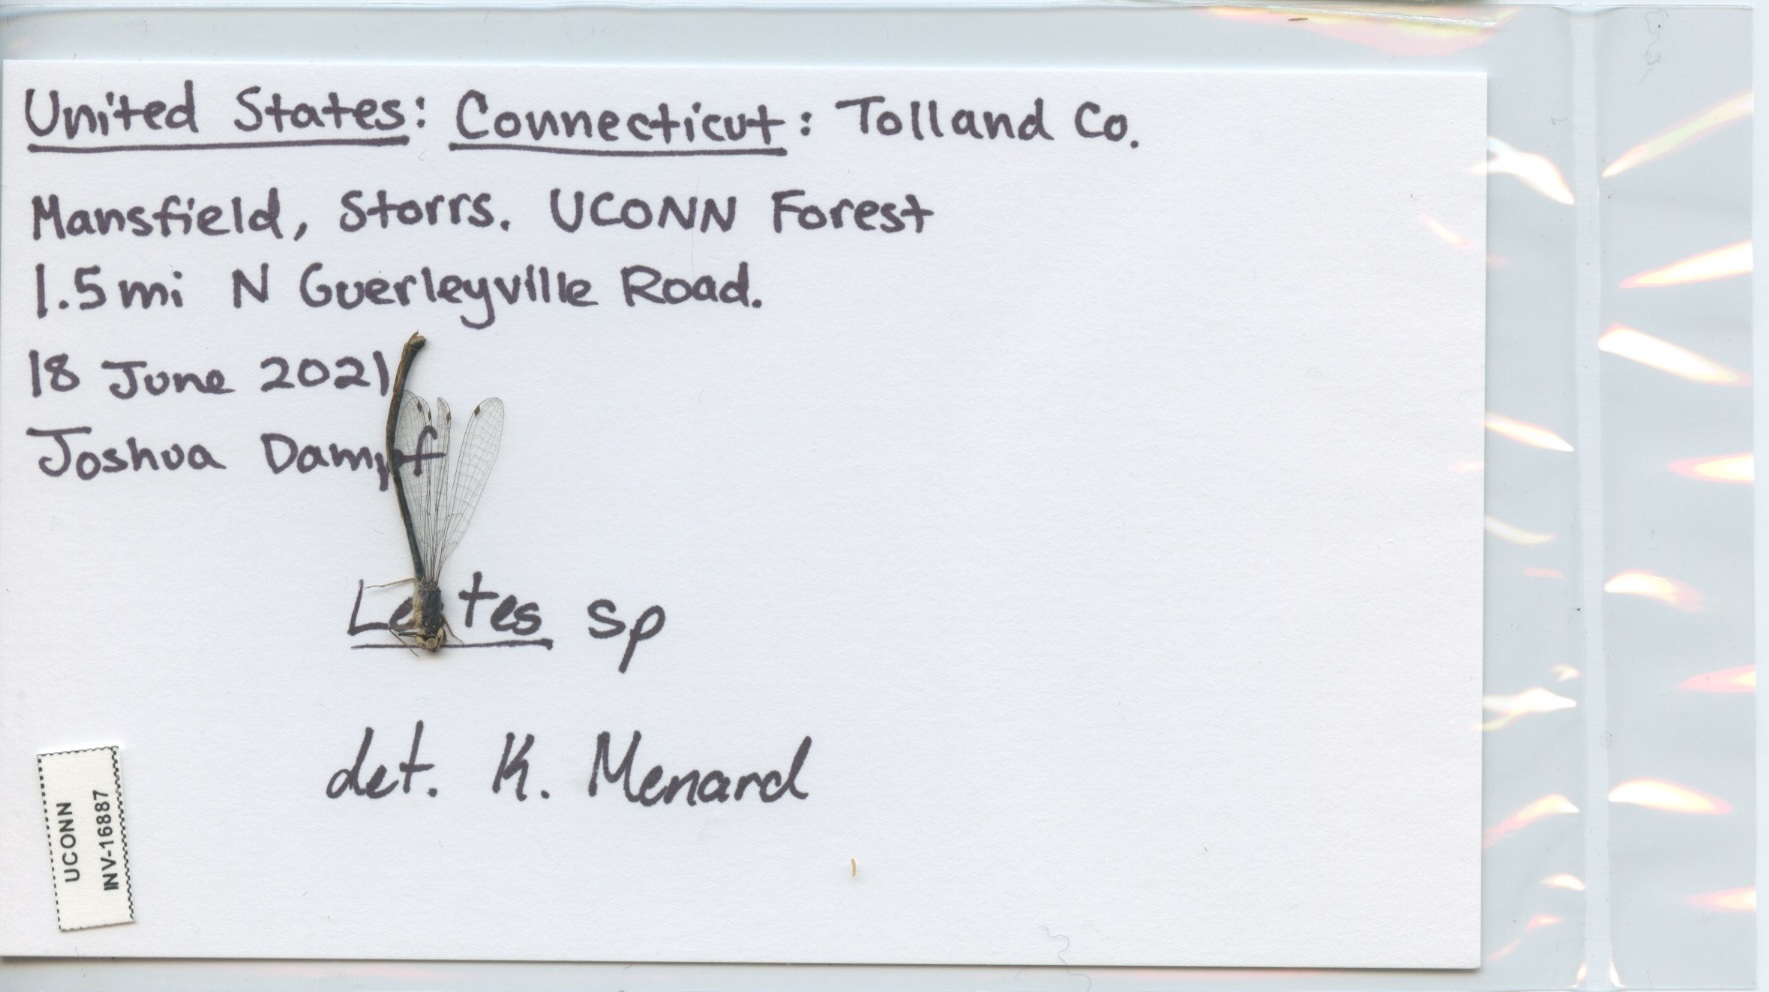 United States: Connecticut: Tolland Co.
Mansfield, Storrs. UCONN Forest
1.5mi N Guerleyville Road.
18 June 2021
Joshua Dampf
Lestes sp
det. K. Menard
UCONN
INV-16887